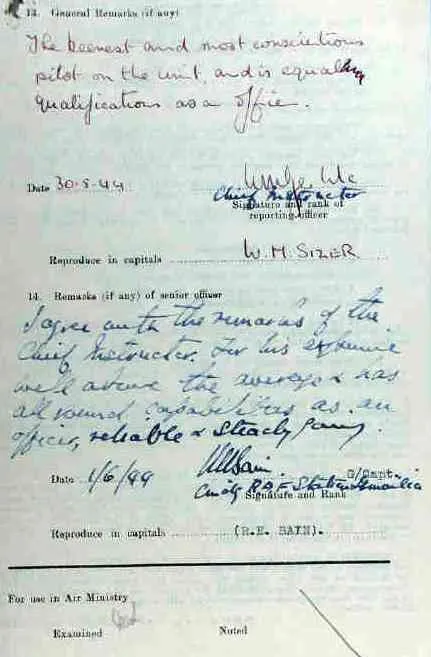 13. General Remarks (if any)
The keenest and most conscientious
pilot on the unit, and is equally
qualifications as a office.
Date 30.5.44
Chief Instructor
Signature and rank of
reporting officer
Reproduce in capitals W. M. SIZER
14. Remarks (if any) of senior officer
I agree with the remarks of the
Chief Instructor. For his experience
well above the average & has
all round capabilities as an
officer, reliable & steady
Date 1/6/44 G/Capt.
Cmdg R.A.F Station Ismailia
Signature and Rank
Reproduce in capitals (R.E. BAIN).
For use in Air Ministry
Examined Noted